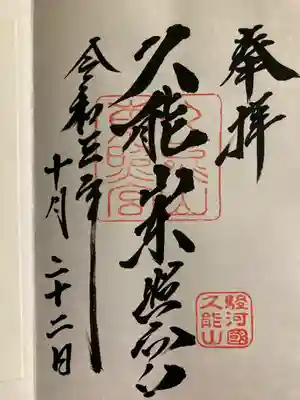 奉拝
久能山東照宮
久能山
東照宮
駿河國
久能山
令和三年十月二十二日